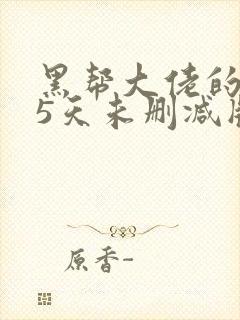 黑帮大佬的
5天未删减版
原香-